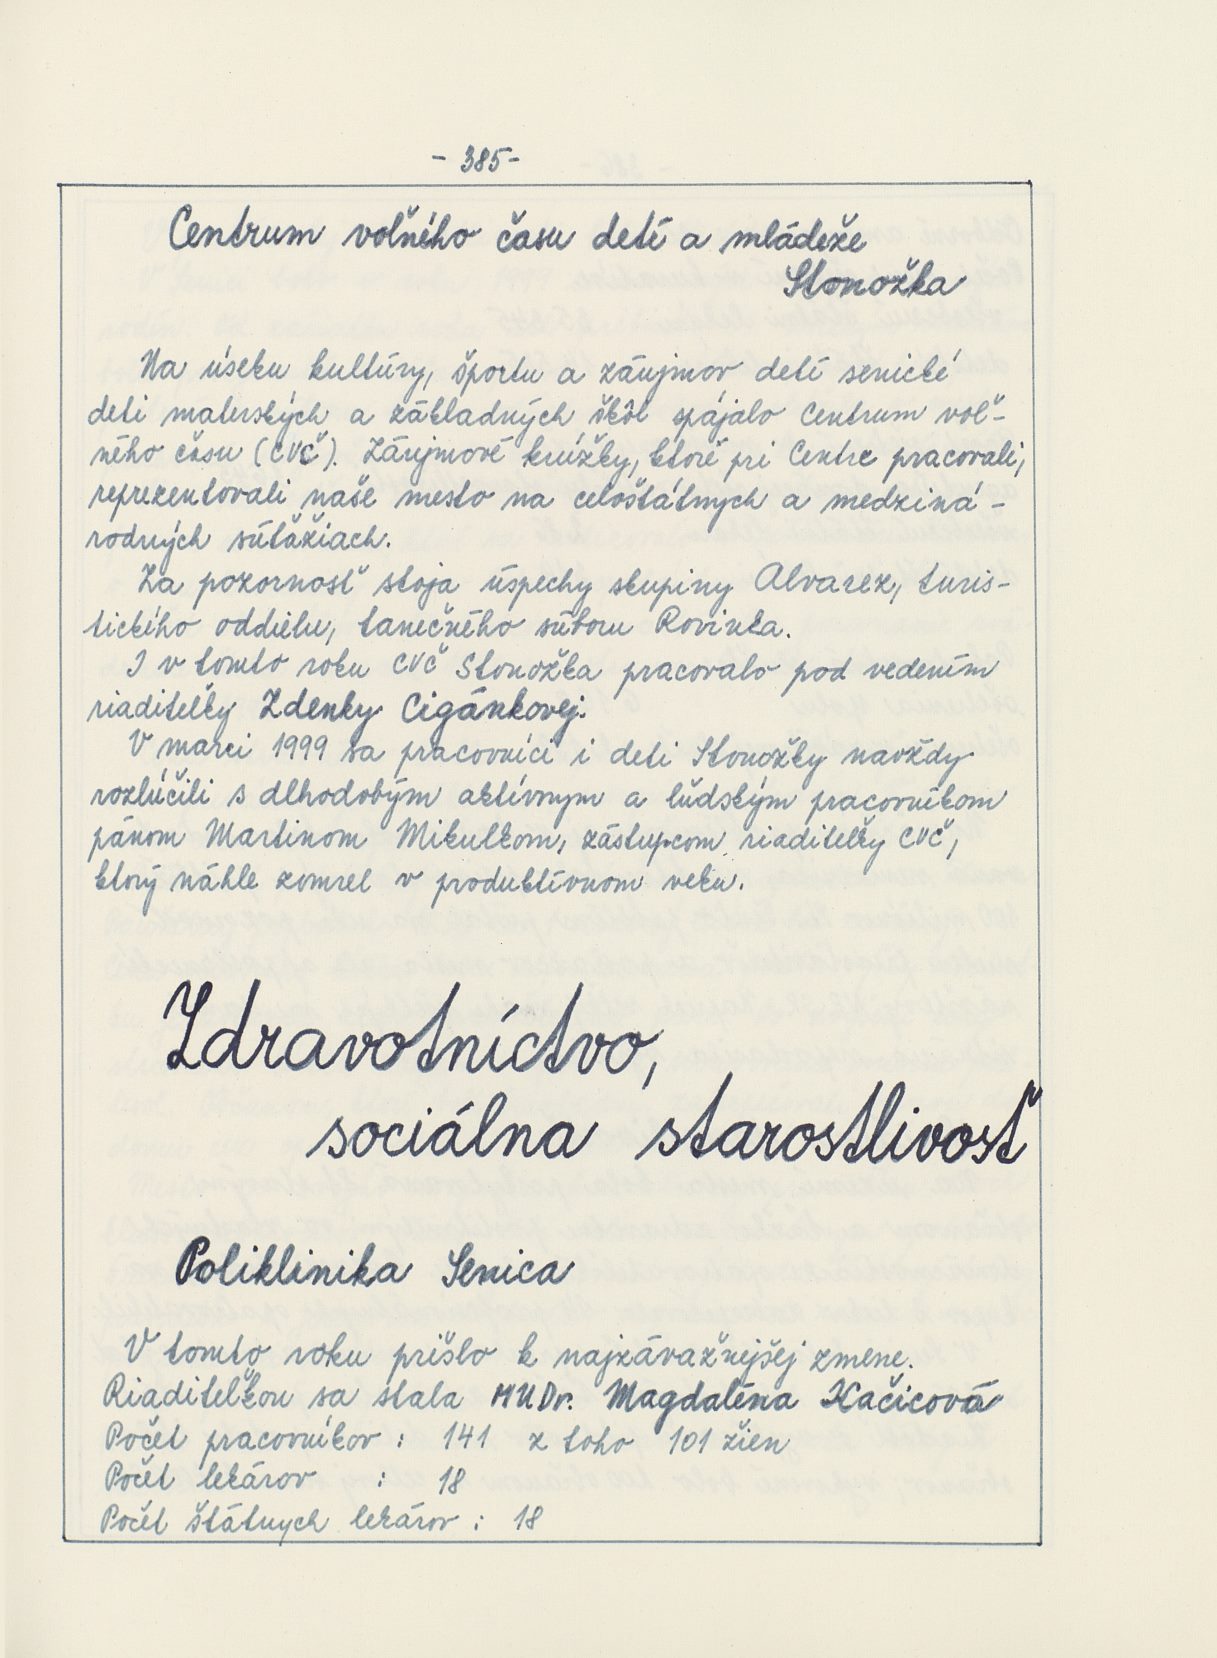 - 385 -
Centrum voľného času detí a mládeže
Stonožka
Na úseku kultúry, športu a záujmov detí senické
deti materských a základných škôl spájalo Centrum voľ-
ného času (CVČ). Záujmové krúžky, ktoré pri Centre pracovali,
reprezentovali naše mesto na celoštátnych a medziná-
rodných súťažiach.
Za pozornosť stoja úspechy skupiny Alvarez, turis-
tického oddielu, tanečného súboru Rovinka.
I v tomto roku CVČ Stonožka pracovalo pod vedením
riaditeľky Zdenky Cigánkovej.
V marci 1999 sa pracovníci i deti Stonožky navždy
rozlúčili s dlhodobým aktívnym a ľudským pracovníkom
pánom Martinom Mikulkom, zástupcom riaditeľky CVČ,
ktorý náhle zomrel v produktívnom veku.
Zdravotníctvo,
sociálna starostlivosť
Poliklinika Senica
V tomto roku prišlo k najzávažnejšej zmene.
Riaditeľkou sa stala MUDr. Magdaléna Kačicová
Počet pracovníkov : 141 z toho 101 žien
Počet lekárov : 18
Počet štátnych lekárov : 18